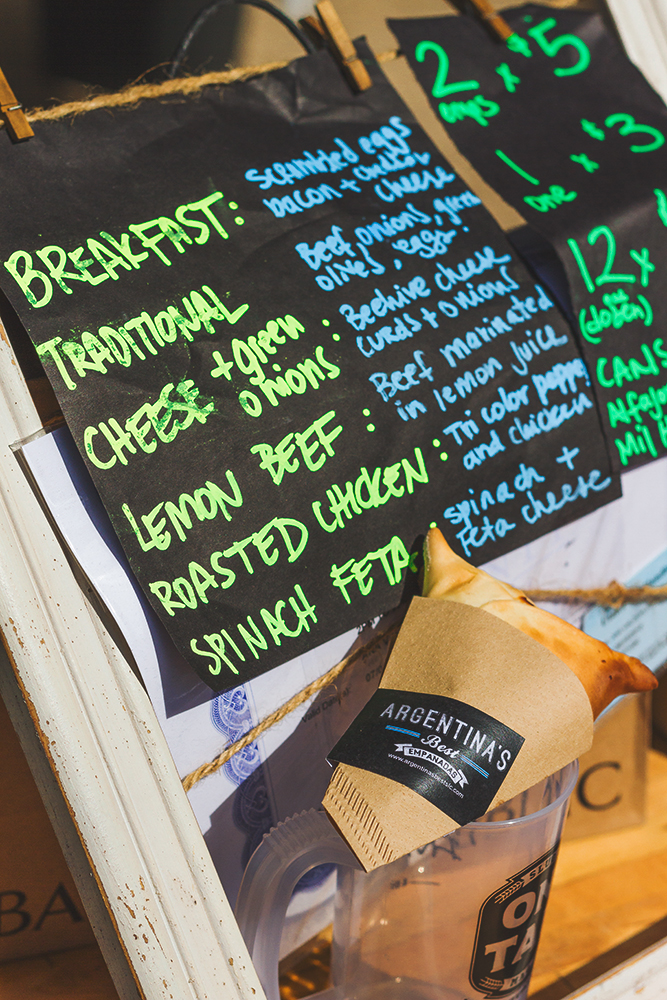 BREAKFAST: scrambled eggs
bacon + cheddar
cheese
TRADITIONAL Beef, onions, green
olives, eggs.
CHEESE + green
onions: Beehive cheese
curds + onions
LEMON BEEF: Beef marinated
in lemon juice
ROASTED CHICKEN: Tri color peppers
and chicken
SPINACH FETA: spinach +
Feta cheese
2 x $5
emps
1 x $3
one
12 x
(dozen)
CANS
Alfajo
Mil h
ARGENTINA'S
Best
EMPANADAS
www.argentinasbestslc.com
ON
TA
BA
C